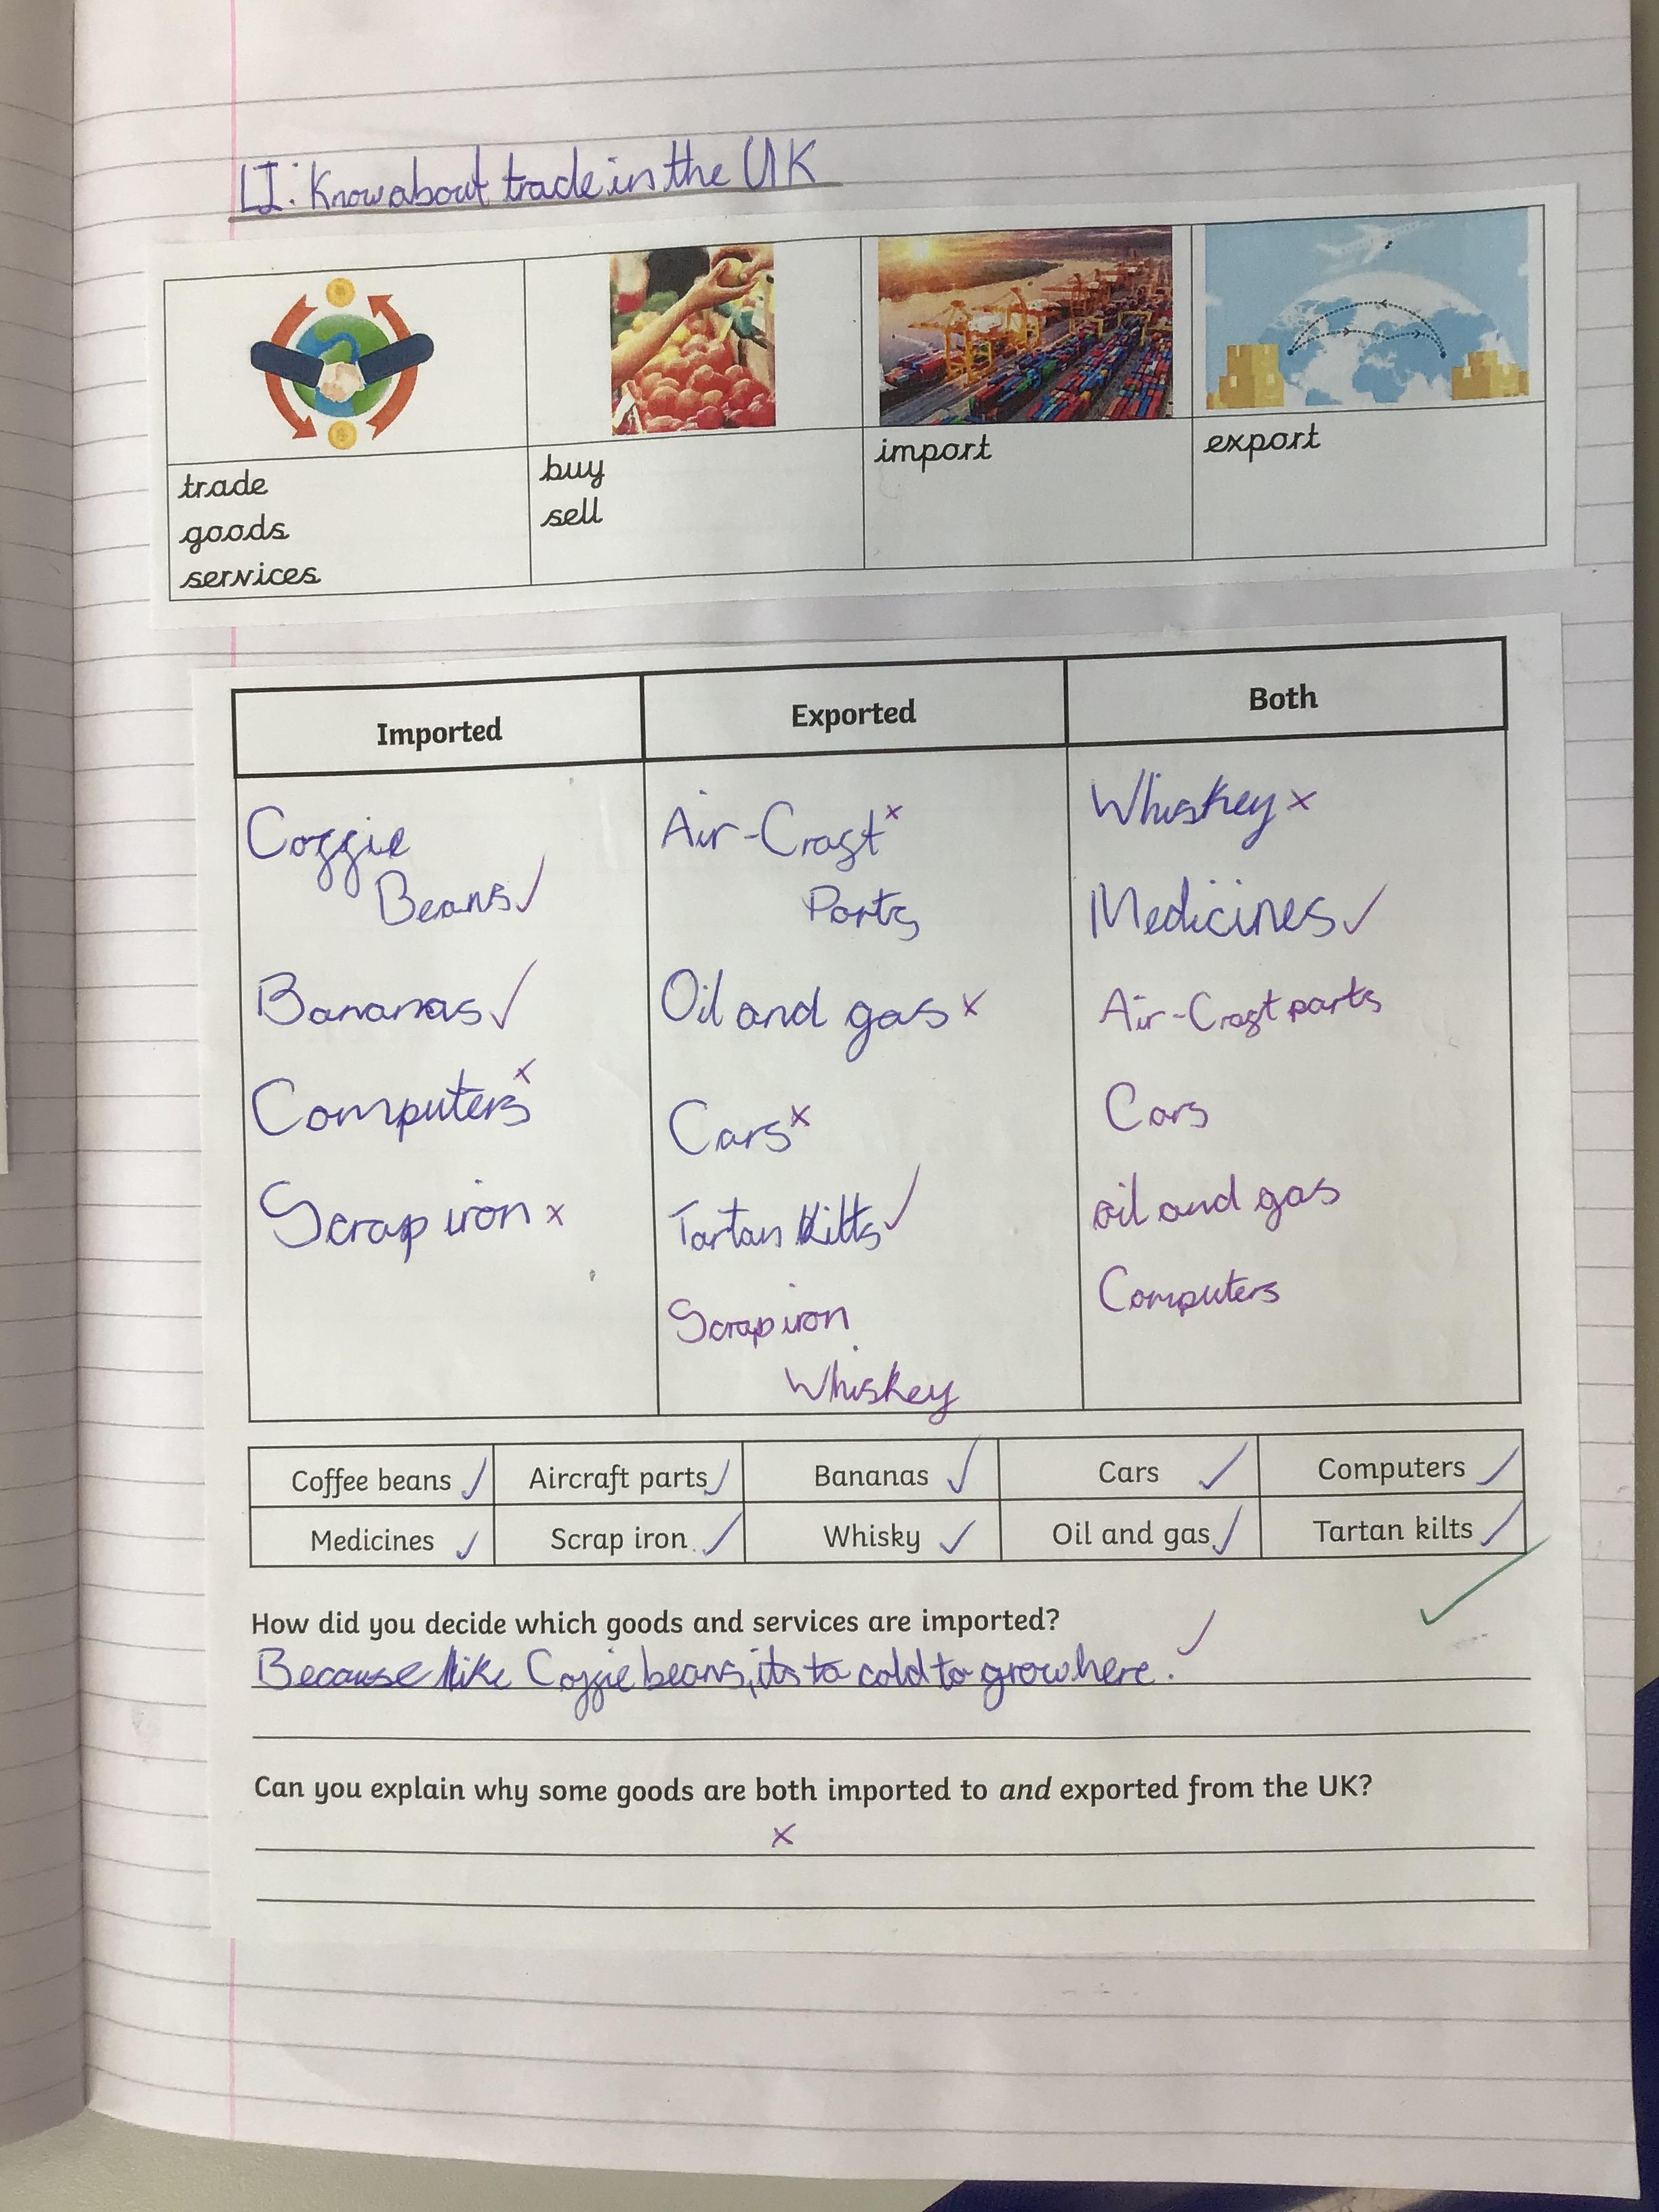 LI: Know about trade in the UK
trade
goods
services
buy
sell
import
export
Imported
Coffie
Beans ✓
Bananas ✓
Computers x
Scrap iron x
Exported
Air-Craft x
Parts
Oil and gas x
Cars x
Tartan Kilts ✓
Scrap iron
Whiskey
Both
Whiskey x
Medicines ✓
Air-Craft parts
Cars
oil and gas
Computers
Coffee beans ✓ Aircraft parts ✓ Bananas ✓ Cars ✓ Computers ✓
Medicines ✓ Scrap iron ✓ Whisky ✓ Oil and gas ✓ Tartan kilts ✓
How did you decide which goods and services are imported?
Because like Coffie beans, its to cold to grow here. ✓
Can you explain why some goods are both imported to and exported from the UK?
x